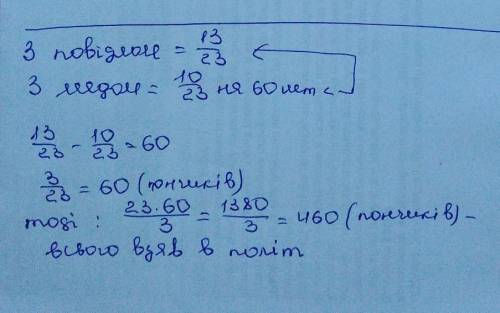 З повідлом = 13/23
З медом = 10/23 на 60 шт
13/23 - 10/23 = 60
3/23 = 60 (пончиків)
тоді : 23·60/3 = 1380/3 = 460 (пончиків) -
всього взяв в політ